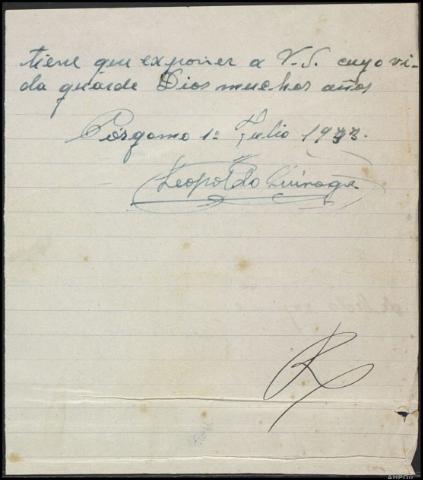 tiene que exponer a V.S. cuyo vi-
da guarde Dios muchos años
Pórgamo 1º Julio 1933.
Leopoldo Quiroga
R